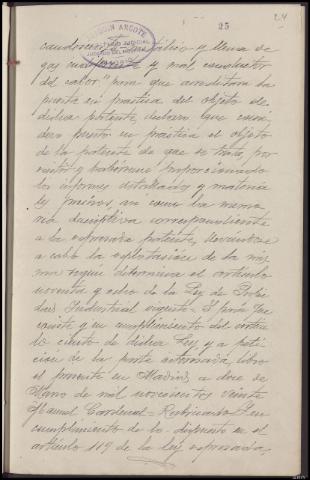 24
25
JUDICIAL
candescente
gas
del calor" para que acreditara la
puesta en práctica del objeto de
dicha patente, declaro que consi-
dero puesto en práctica el objeto
de la patente de que se trata, por
existir y habérseme proporcionado
los informes detallados y materia
les precisos, así como la memo
ria descriptiva correspondiente
a la expresada patente, llevándose
a cabo la explotación de la mis
ma según determina el artículo
noventa y ocho de la Ley de Propie
dad Industrial vigente = Y para que
conste y en cumplimiento del artícu
lo ciento de dicha Ley y a peti
ción de la parte interesada libro
el presente en Madrid a doce de
Mayo de mil novecientos veinte
Manuel Cardenal = Rubricado = En
cumplimiento de lo dispuesto en el
artículo 119 de la ley expresada